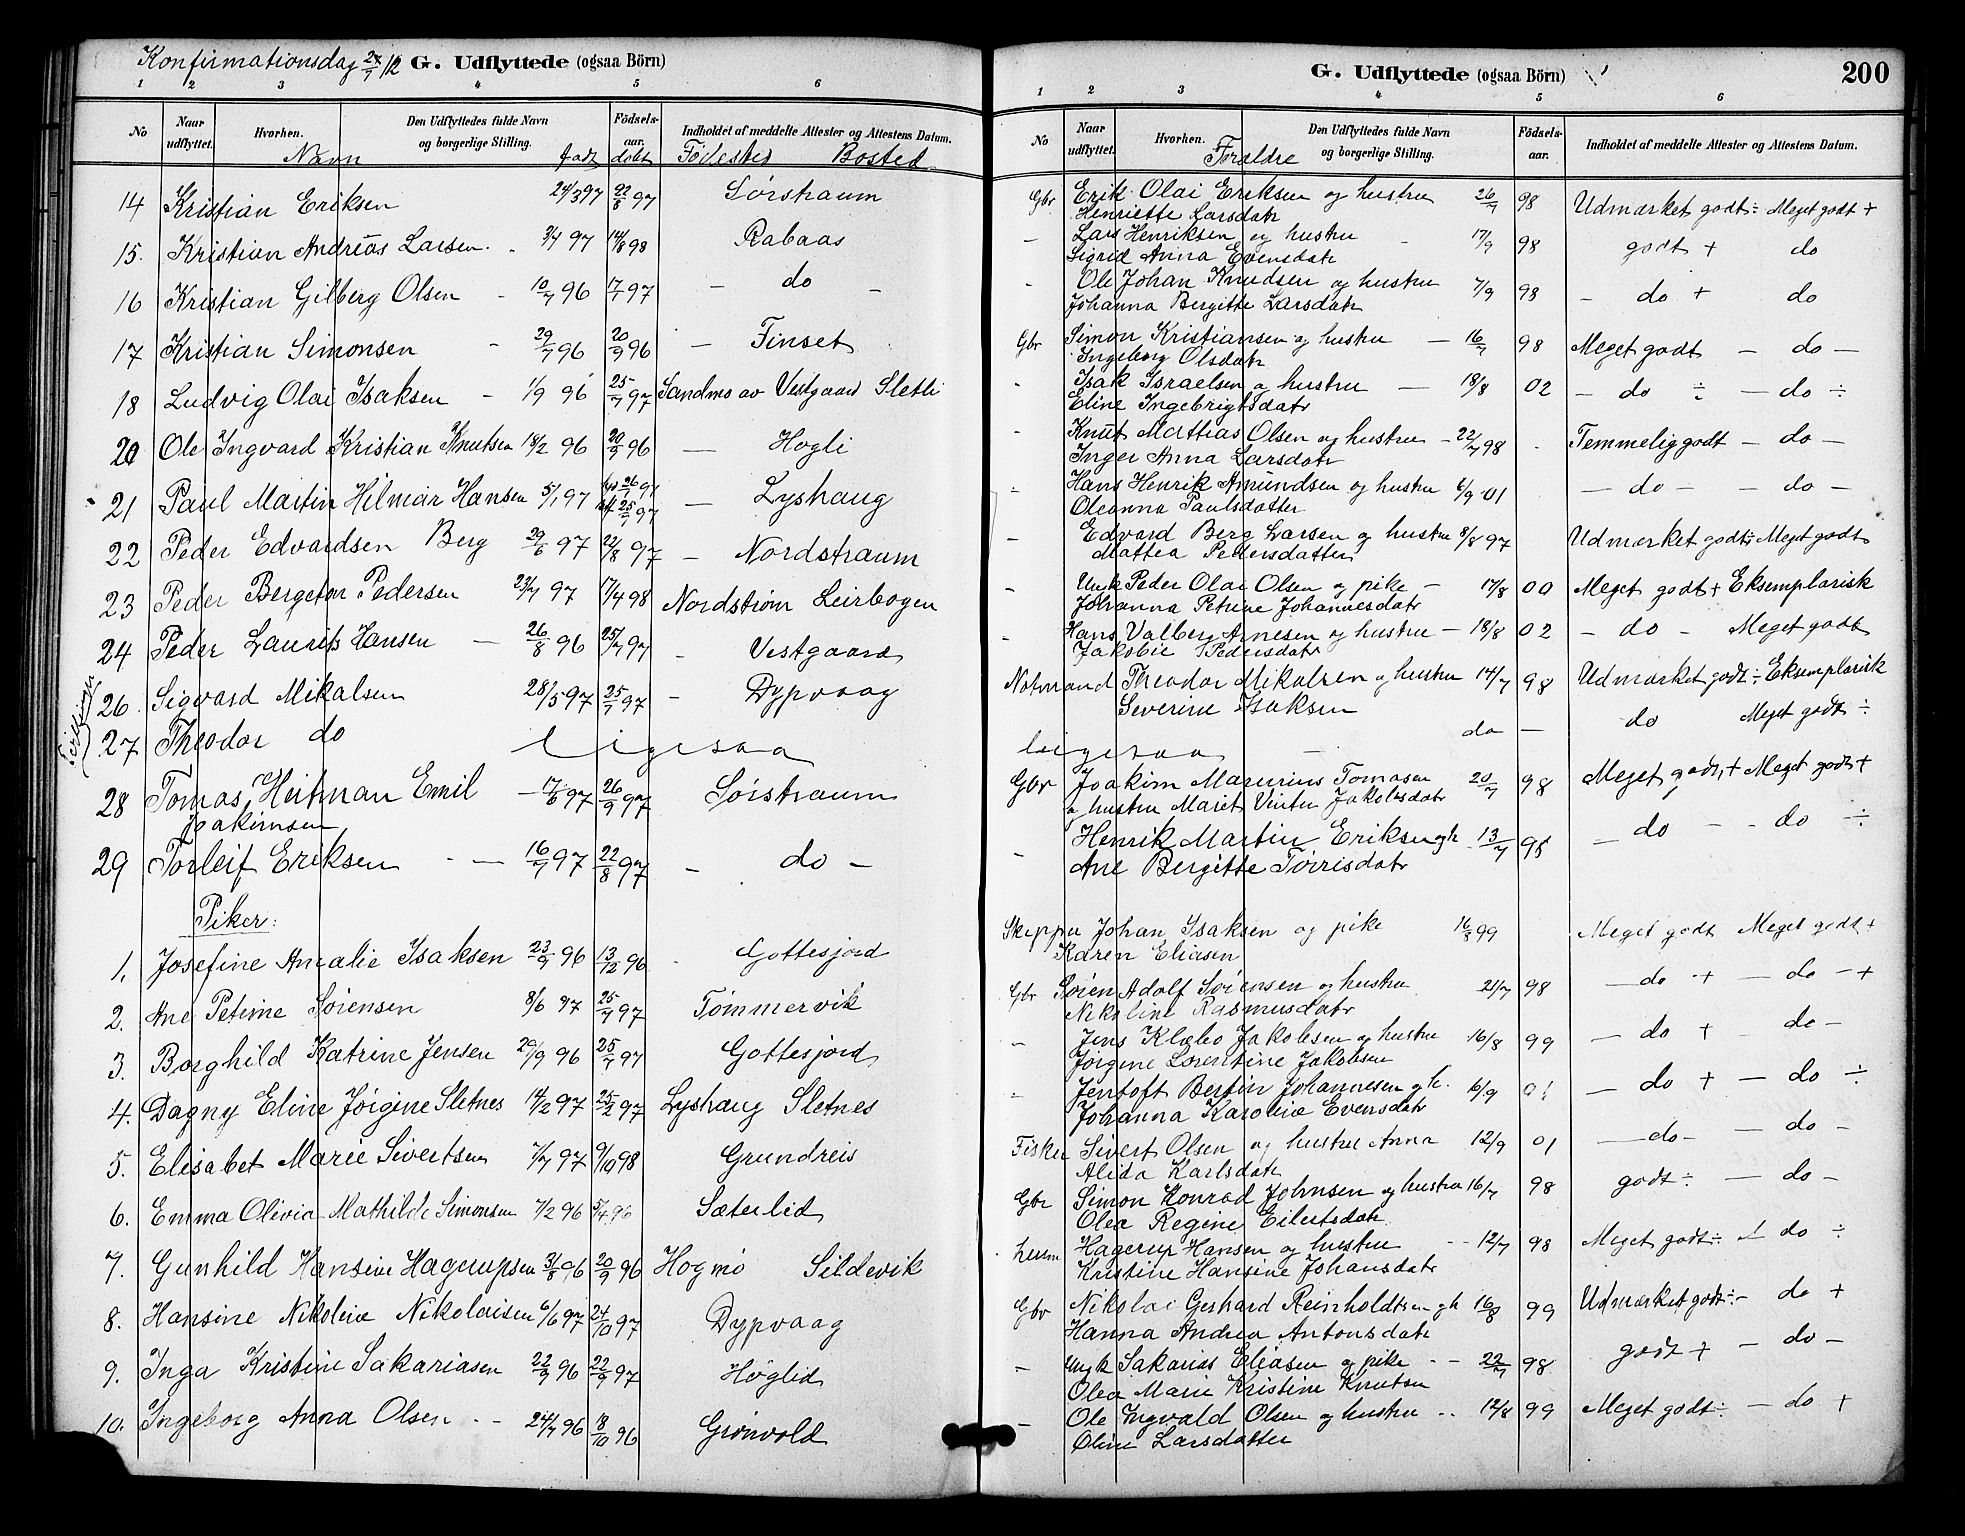 Konfirmationsdag 27/7 12 G. Udflyttede (ogsaa Börn)
1 2 3 4 5 6
No Naar udflyttet. Hvorhen. Den Udflyttedes fulde Navn og borgerlige Stilling. Fødsels-aar. Indholdet af meddelte Attester og Attestens Datum.
Navn født døbt Fødested Bosted
14 Kristian Eriksen 24/3 97 22/8 97 Sørstraum
15. Kristian Andreas Larsen. 3/7 97 14/8 98 Rabaas
16 Kristian Gilberg Olsen - 10/7 96 17/7 97 - do -
17 Kristian Simonsen - 29/7 96 20/9 96 - Finset
18 Ludvig Olai Isaksen - 1/9 96 25/7 97 Sandmo av Vestgaard Sletli
20 Ole Ingvard Kristian Knutsen 18/2 96 20/9 96 - Hogli
21 Paul Martin Hilmar Hansen 5/1 97 26/1 97 25/7 97 - Lyshaug
22 Peder Edvardsen Berg 29/6 97 22/8 97 - Nordstraum
23 Peder Bergeton Pedersen 23/7 97 17/4 98 Nordstrøm Leirbogen
24 Peder Laurits Hansen - 26/8 96 25/7 97 - Vestgaard
26 Sigvard Mikalsen 28/5 97 25/7 97 - Dypvaag
27 Theodor do ligesaa
28 Tomas Heitman Emil - 17/6 97 26/9 97 Sørstraum
Joakimsen
29 Torleif Eriksen - 16/7 97 22/8 97 - do -
Piker:
1. Josefine Amalie Isaksen 23/9 96 13/12 96 Gottesjord
2. Ane Petrine Sørensen 8/6 97 25/7 97 Tømmervik
3. Borghild Katrine Jensen 29/9 96 25/7 97 Gottesjord
4. Dagny Eline Jørgine Sletnes 14/2 97 25/2 97 Lyshaug Sletnes
5. Elisabet Marie Sivertsen 7/7 97 9/10 98 Grundreis
6. Emma Olivia Mathilde Simonsen 7/2 96 5/4 96 Sæterlid
7. Gunhild Hansine Hagerupsen 31/8 96 20/9 96 Hogmo Sildevik
8. Hansine Nikoline Nikolaisen 6/6 97 24/10 97 Dypvaag
9. Inga Kristine Sakariasen 22/9 96 22/9 97 Høglid
10. Ingeborg Anna Olsen - - 24/7 96 18/10 96 Grønvold
G. Udflyttede (ogsaa Börn) 200
1 2 3 4 5 6
No Naar udflyttet. Hvorhen. Den Udflyttedes fulde Navn og borgerlige Stilling. Fødsels-aar. Indholdet af meddelte Attester og Attestens Datum.
Forældre
Gbr Erik Olai Eriksen og hustru 26/7 98 Udmærket godt ÷ Meget godt +
Henriette Larsdatr
- Lars Henriksen og hustru - 17/9 98 godt + do
Sigrid Anna Evensdatr
- Ole Johan Knudsen og hustru 7/9 98 - do + do
Johanna Bergitte Larsdatr
Gbr Simon Kristiansen og hustru - 16/7 98 Meget godt - do -
Ingeborg Olsdatr
- Isak Israelsen og hustru - 18/8 02 - do ÷ - do ÷
Eline Ingebrigtsdatr
- Knut Mattias Olsen og hustru - 22/7 98 - Temmelig godt - do -
Inger Anna Larsdatr
- Hans Henrik Amundsen og hustru 6/9 01 - do - - do -
Oleanna Paulsdatter
- Edvard Berg Larsen og hustru 8/8 97 Udmærket godt ÷ Meget godt
Mattea Pedersdatter
- Ungk Peder Olai Olsen og pike - 17/8 00 Meget godt + Eksemplarisk
Johanna Petrine Johannesdatr
- Hans Valberg Arnesen og hustru - 18/8 02 - do - Meget godt
Jakobie Pedersdatr
Notmand Theodor Mikalsen og hustru 14/7 98 Udmærket godt ÷ Eksemplarisk
Severine Isaksen
ligesaa - do - do Meget godt ÷
Gbr Joakim Maturius Tomasen 20/7 98 Meget godt + Meget godt +
og hustru Maret Vintru Jakobsdatr
- Henrik Martin Eriksen og h 13/7 95 - do - - do ÷
Ane Bergitte Tørrisdatr
Skipper Johan Isaksen og pike 16/8 99 Meget godt Meget godt +
Karen Eliasen
Gbr Søren Adolf Sørensen og hustru 21/7 98 - do + - do - +
Nikoline Rasmusdatr
- Jens Klæbo Jakobsen og hustru 16/8 99 - do + do -
Jørgine Lorentine Jakobsen
- Jentoft Bertin Johannesen og h. 6/9 01 - do + - do ÷
Johanna Karoline Evensdatr
Fisker Sivert Olsen og hustru Anna 12/9 01 - do - - do -
Alida Karlsdatr
Gbr Simon Konrad Johnsen og hustru 16/7 98 godt ÷ - do -
Olea Regine Eilertsdatr
Hagerup Hansen og hustru - - 12/7 98 Meget godt ÷ do ÷
Kristine Hansine Johansdatr
Gbr Nikolai Gerhard Reinholdtsen og h 16/8 99 Udmærket godt ÷ - do +
Hanna Andrea Antonsdatr
- Ungk Sakarias Eliasen og pike - - 22/7 98 godt + - do -
Olea Marie Kristine Knutsen
- Ole Ingvald Olsen og hustru - - 12/8 99 Meget godt ÷ - do +
Oline Larsdatter